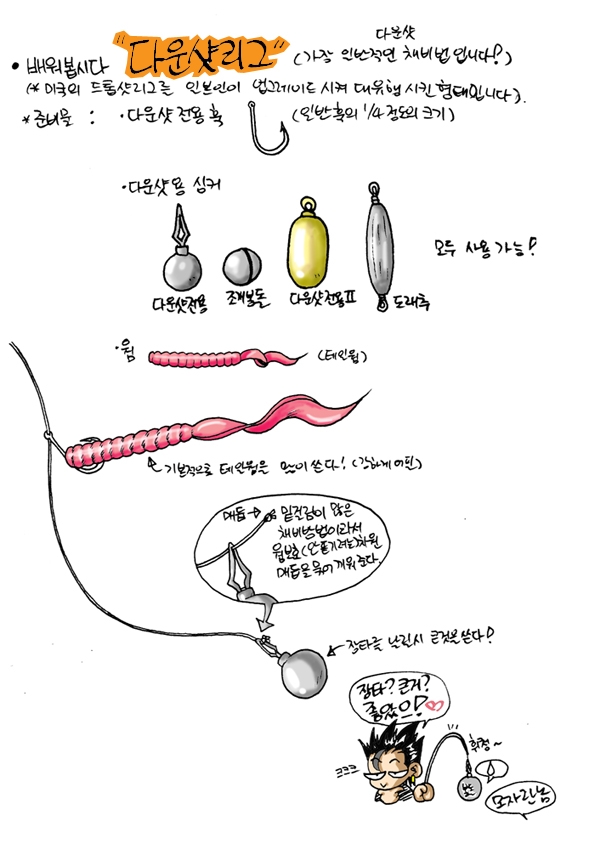 다운샷
• 배워봅시다 "다운샷리그" (가장 일반적인 채비법 입니다!)
(* 미국의 드롭샷리그를 일본인이 업그레이드 시켜 대유행 시킨 형태입니다).
* 준비물 : ·다운샷 전용 훅 (일반훅의 1/4 정도의 크기)
·다운샷용 싱커
모두 사용 가능!
다운샷전용 조개봉돌 다운샷전용Ⅱ 도래추
·웜 (테일웜)
기본적으로 테일웜을 많이 쓴다!
매듭→ 밑걸림이 많은
채비방법이라서
매듭을 묶어 끼워준다.
장타를 날릴시 큰것을 쓴다!
장타? 큰거?
좋았으!
ㅋㅋㅋ
휘청~
모자란놈